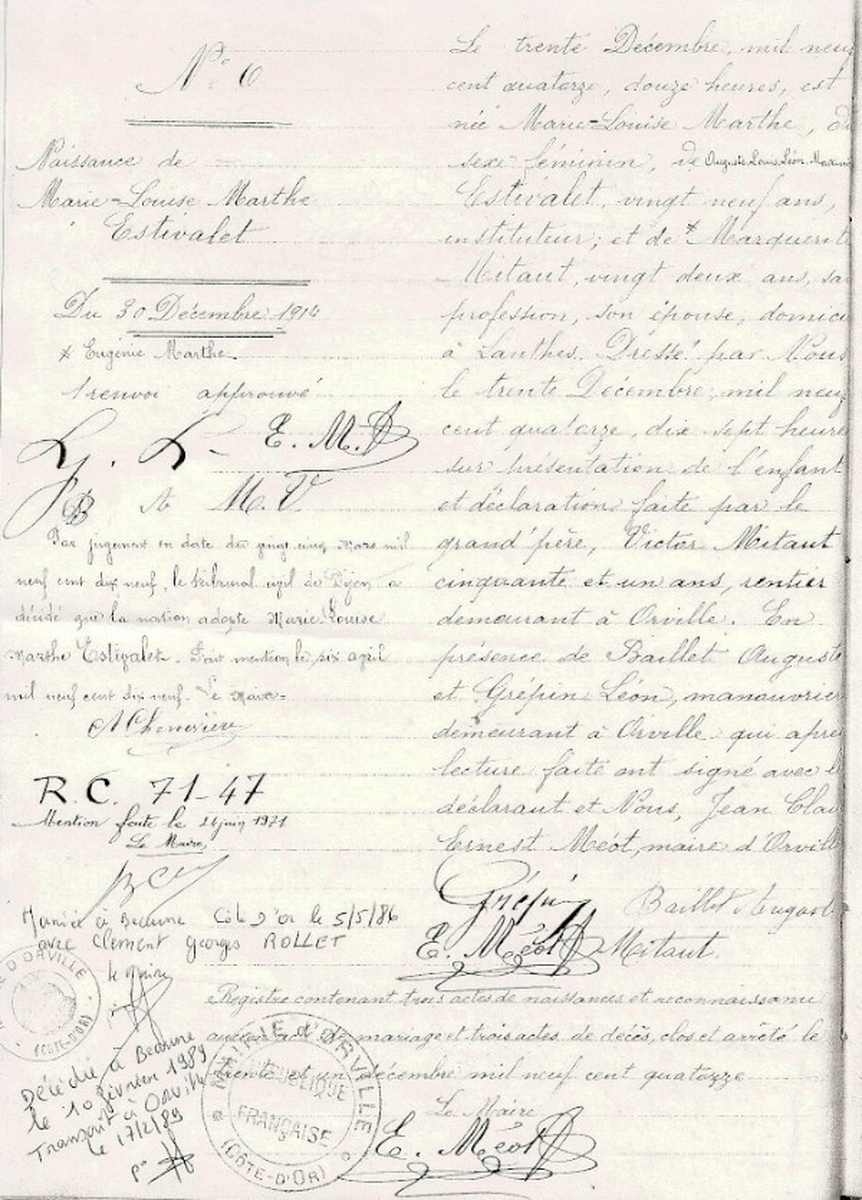 N° 6
Naissance de
Marie-Louise Marthe
Estivalet
Du 30 Décembre 1914
x Eugénie Marthe.
1 renvoi approuvé
G. L. E. M.
B A M. V
Par jugement en date du vingt cinq mars mil
neuf cent dix neuf, le tribunal civil de Dijon a
décidé que la nation adopte Marie Louise
Marthe Estivalet. Fait mention le six avril
mil neuf cent dix neuf. Le Maire
A Chenevière
R.C. 71-47
Mention faite le 21 juin 1971
Le Maire,
Mariée à Beaune Côte d'Or le 5/5/86
avec Clement Georges ROLLET
le maire
D'ORVILLE
(CÔTE-D'OR)
Décédée à Beaune
le 10 février 1989
Transcrit à Orville
le 17/2/89
Le trente Décembre, mil neuf
cent quatorze, douze heures, est
née Marie-Louise Marthe, du
sexe féminin, de Auguste Louis Léon
Estivalet, vingt neuf ans,
instituteur; et de x Marguerite
Mitaut, vingt deux ans, sa
profession, son épouse, domici
à Lanthes. Dressé par Nous
le trente Décembre, mil neuf
cent quatorze, dix sept heure
sur présentation de l'enfant
et déclaration faite par le
grand'père, Victor Mitaut
cinquante et un ans, rentier
demeurant à Orville. En
présence de Baillet Auguste
et Grépin Léon, manouvrier
demeurant à Orville qui aprè
lecture faite ont signé avec le
déclarant et Nous, Jean Clau
Ernest Méot, maire d'Orville
Grépin Baillet August
E. Méot Mitaut.
Registre contenant trois actes de naissances et reconnaissance
aucun acte de mariage et trois actes de décès, clos et arrêté le
trente et un décembre mil neuf cent quatorze
Le Maire
E. Méot
MAIRIE D'ORVILLE
RÉPUBLIQUE
FRANÇAISE
(CÔTE-D'OR)